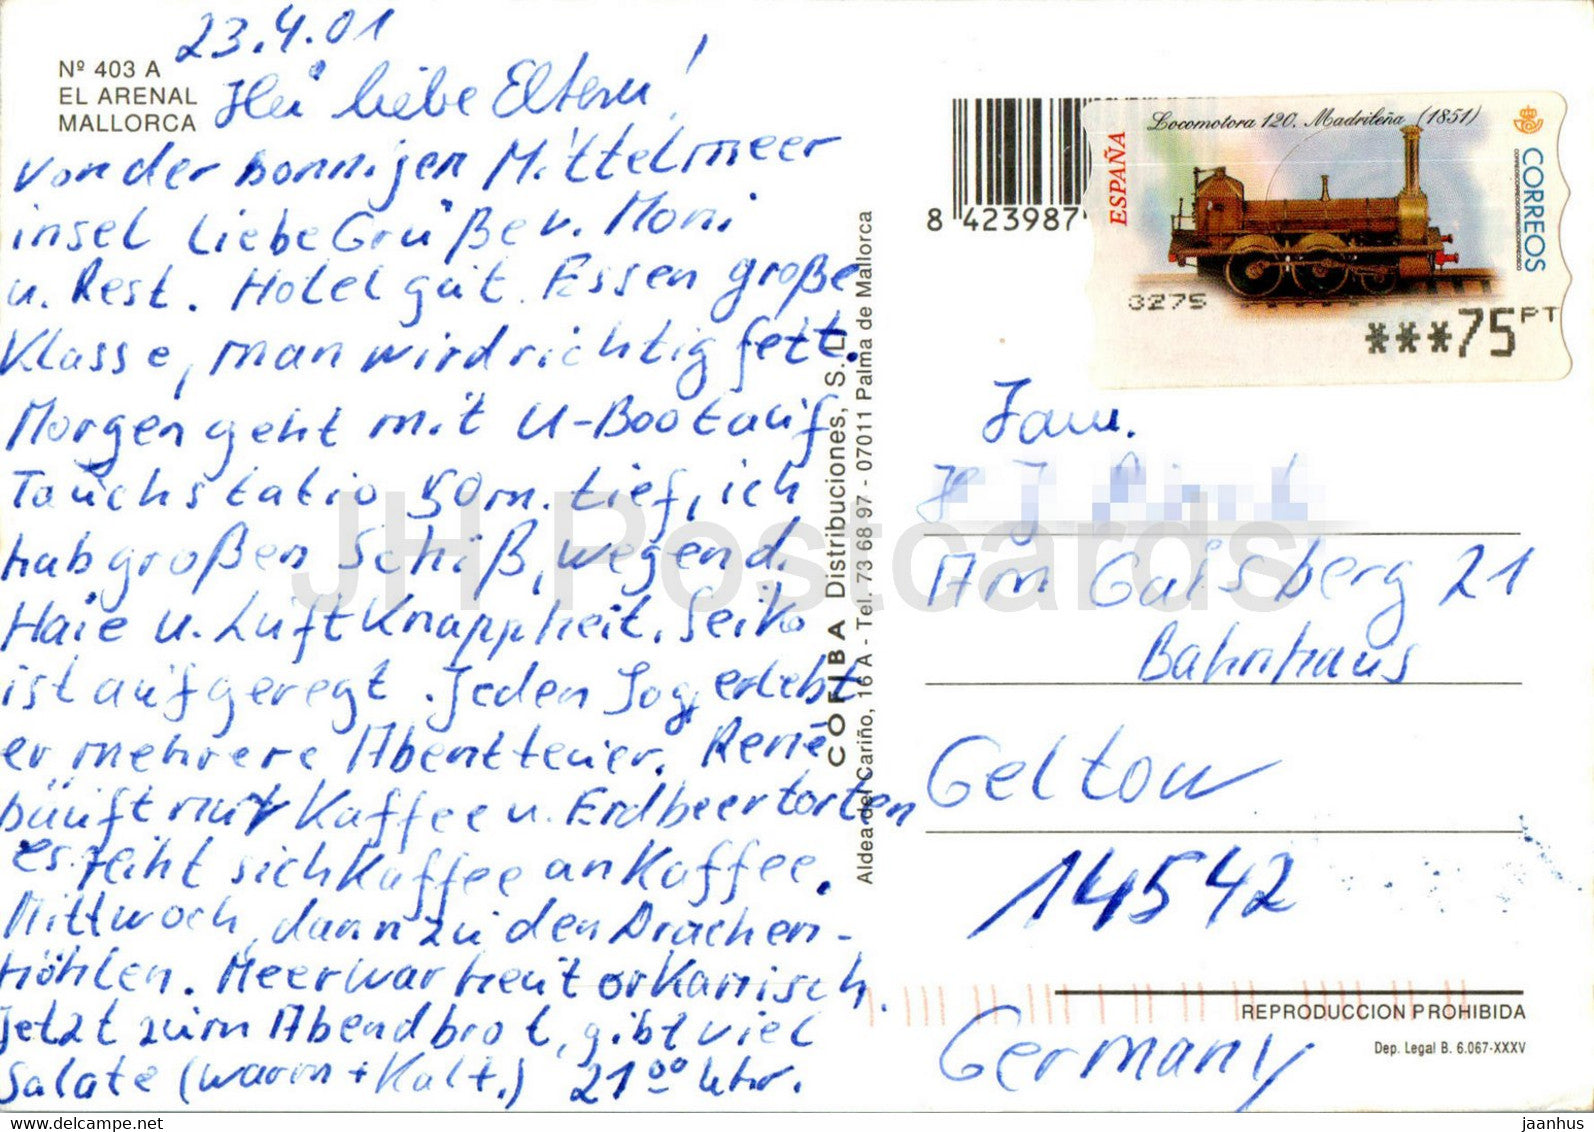 23.4.01
Nº 403 A
EL ARENAL
MALLORCA
Hei liebe Eltern!
von der sonnigen Mittelmeer
insel Liebe Grüße v. Moni
u. Rest. Hotel gut. Essen große
Klasse, man wird richtig fett.
Morgen geht mit U-Boot auf
Tauchstatio 50 m. tief, ich
hab großen Schiß, wegen d.
Haie u. Luftknappheit. Seiko
ist aufgeregt. Jeden Tag erlebt
er mehrere Abentteuer. René
säuft nur Kaffee u. Erdbeertorten
es reiht sich Kaffee an Kaffee.
Mittwoch, dann zu den Drachen-
höhlen. Meer war heut orkanisch.
Jetzt zum Abendbrot, gibt viel
Salate (warm + Kalt.) 21ºº Uhr.
COFIBA Distribuciones, S. L.
Aldea del Cariño, 16 A - Tel. 73 68 97 - 07011 Palma de Mallorca
8 423987
Locomotora 120. Madrileña (1851)
ESPAÑA
CORREOS
3275
***75 PT
Fam.
H J
Am Galsberg 21
Bahnhaus
Geltow
14542
Germany
REPRODUCCION PROHIBIDA
Dep. Legal B. 6.067-XXXV
JH Postcards
jaanhus